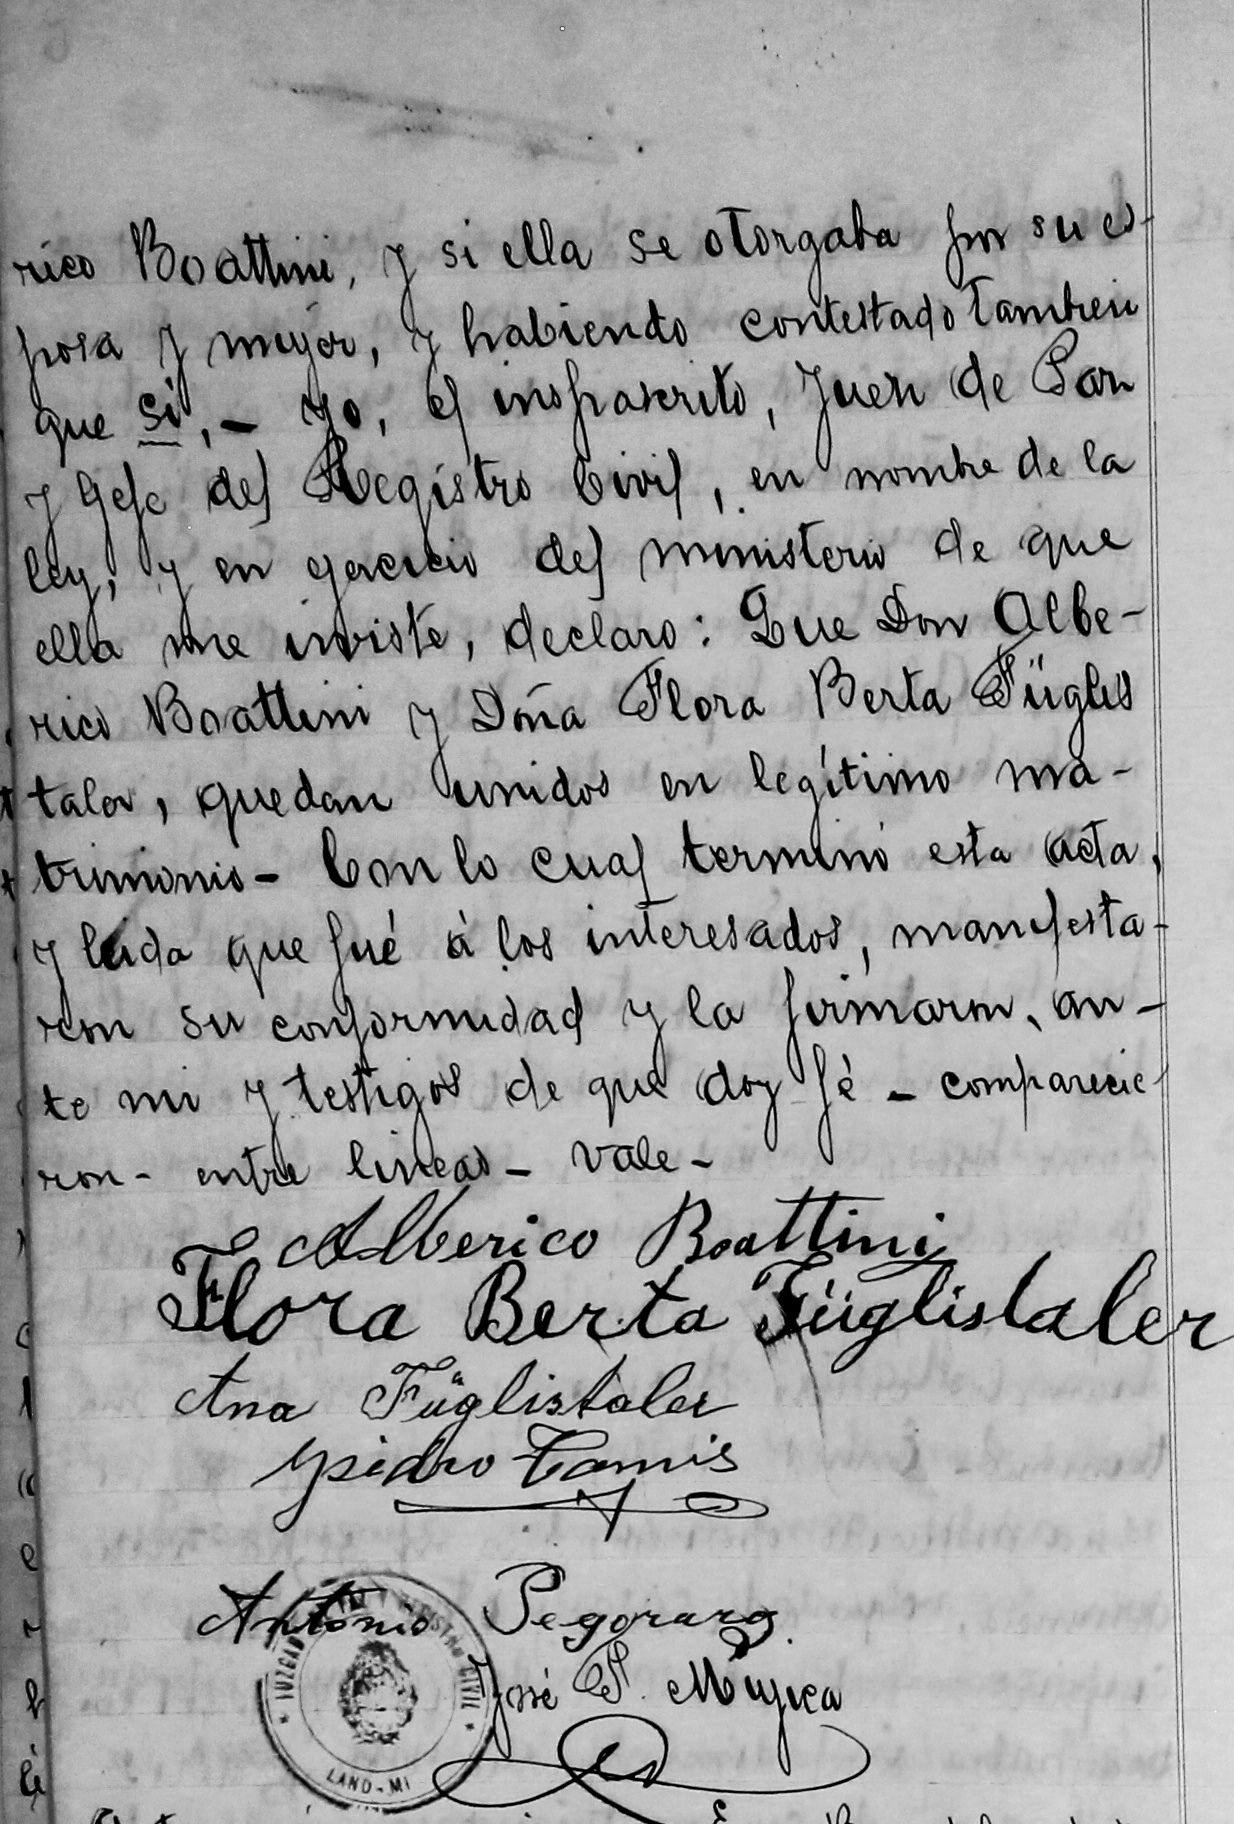 rico Boattini, y si ella se otorgaba por su es-
posa y mujer, y habiendo contestado tambien
que si, - Yo, el infrascrito, Juez de Paz
y Gefe del Registro Civil, en nombre de la
ley, y en gercicio del ministerio de que
ella me inviste, declaro: Que Don Albe-
rico Boattini y Doña Flora Berta Füglis
taler, quedan unidos en legítimo ma-
trimonio - Con lo cual terminó esta acta,
y leida que fué á los interesados, manifesta-
ron su conformidad y la firmaron, an-
te mi y testigos de que doy fé - comparecie-
ron - entre lineas - vale -
Alberico Boattini
Flora Berta Füglistaler
Ana Füglistaler
Ysidro Camis
Antonio Pegoraro
José P. Mujica
JUZGADO Y REGISTRO CIVIL
LAND - MI